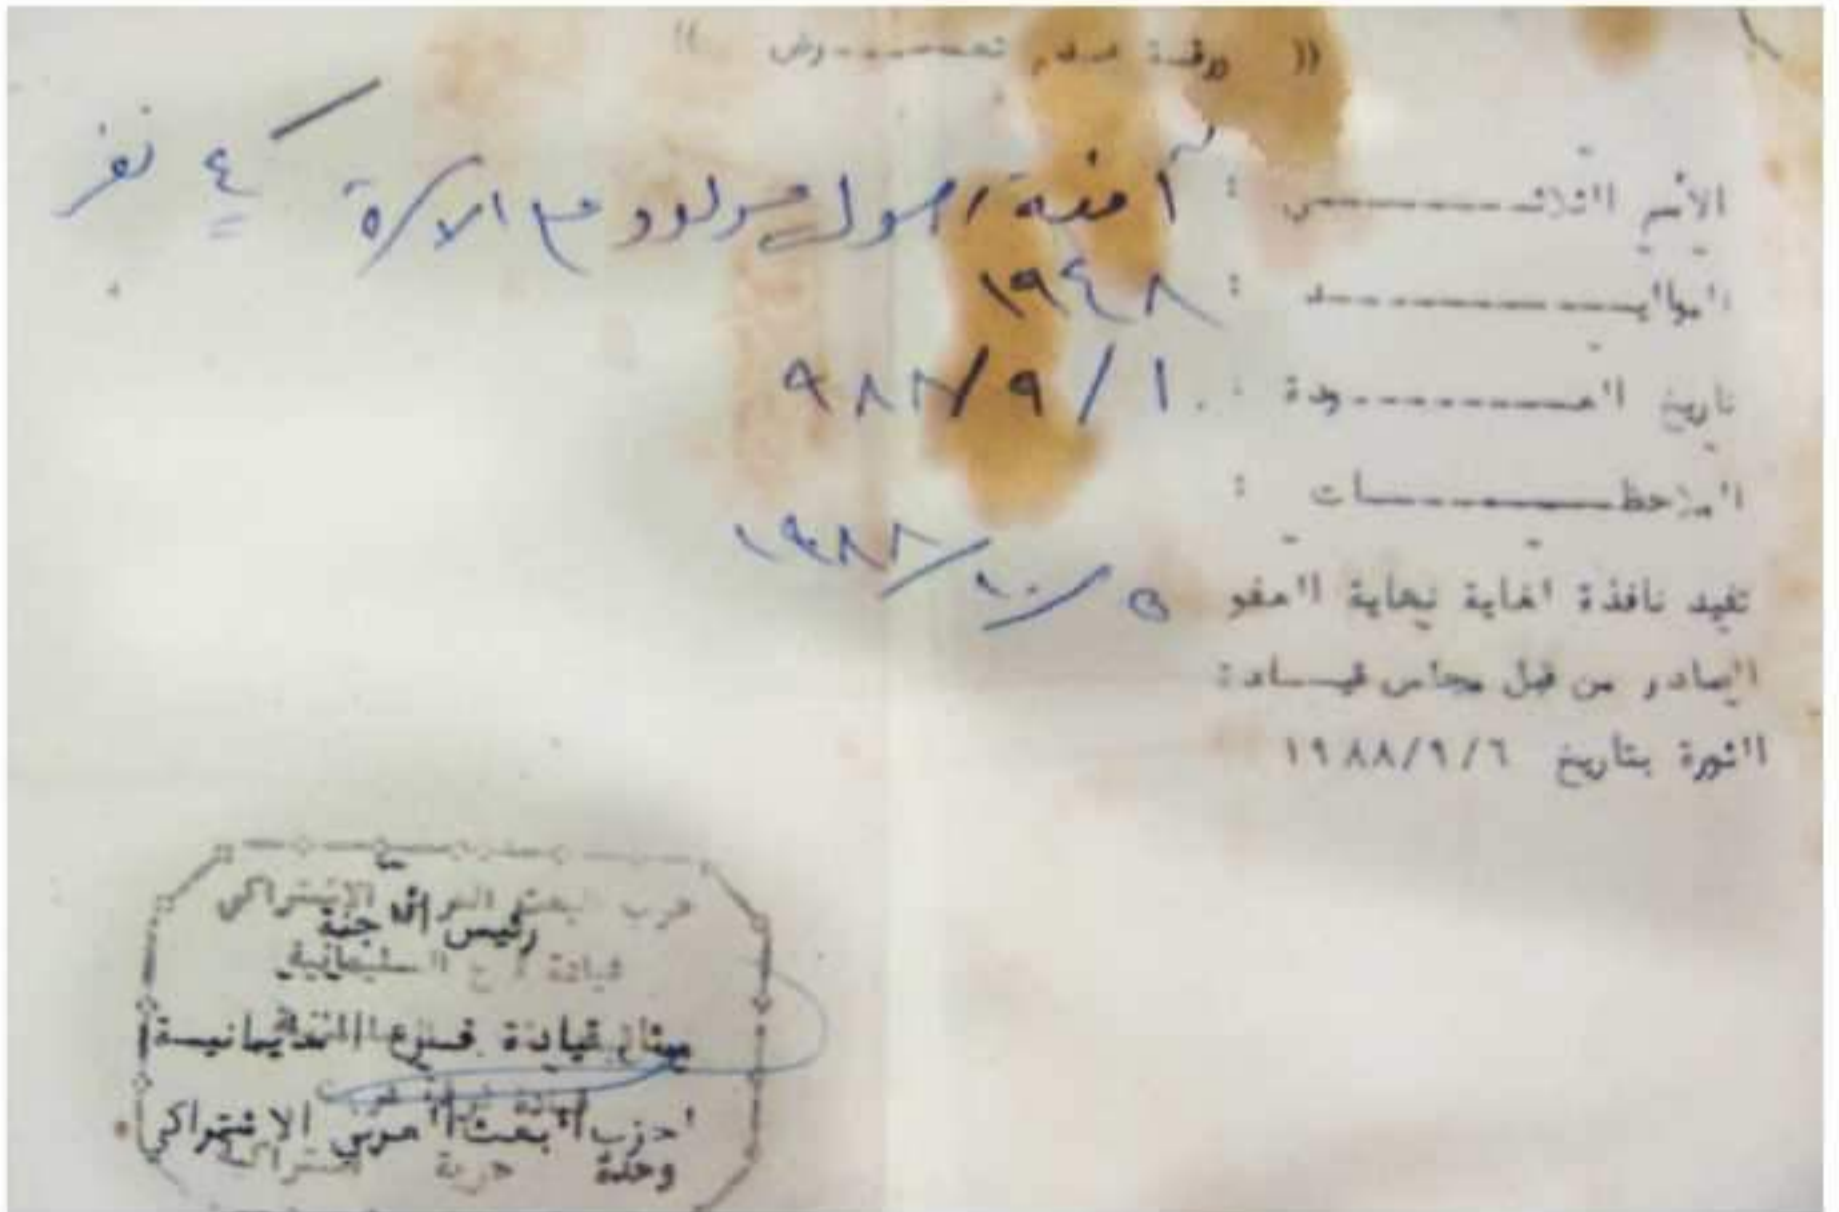 (( ورقة عدم تعـــرض ))
الاسم الثلاثـــي : آمنة رسول مولود مع الاسرة ٤ نفر
المواليـــد : ١٩٤٨
تاريخ العـــودة : ١٠/٩/٩٨٨
الملاحظـــات :
٥/١٠/١٩٨٨
تفيد نافذة لغاية نهاية العفو
الصادر من قبل مجلس قيـــادة
الثورة بتاريخ ١٩٨٨/٩/٦
حزب البعث العربي الاشتراكي
رئيس اللجنة
قيادة السليمانية
ممثل قيادة فرع السليمانيـة
لحزب البعث العربي الاشتراكي
وحدة حرية اشتراكية